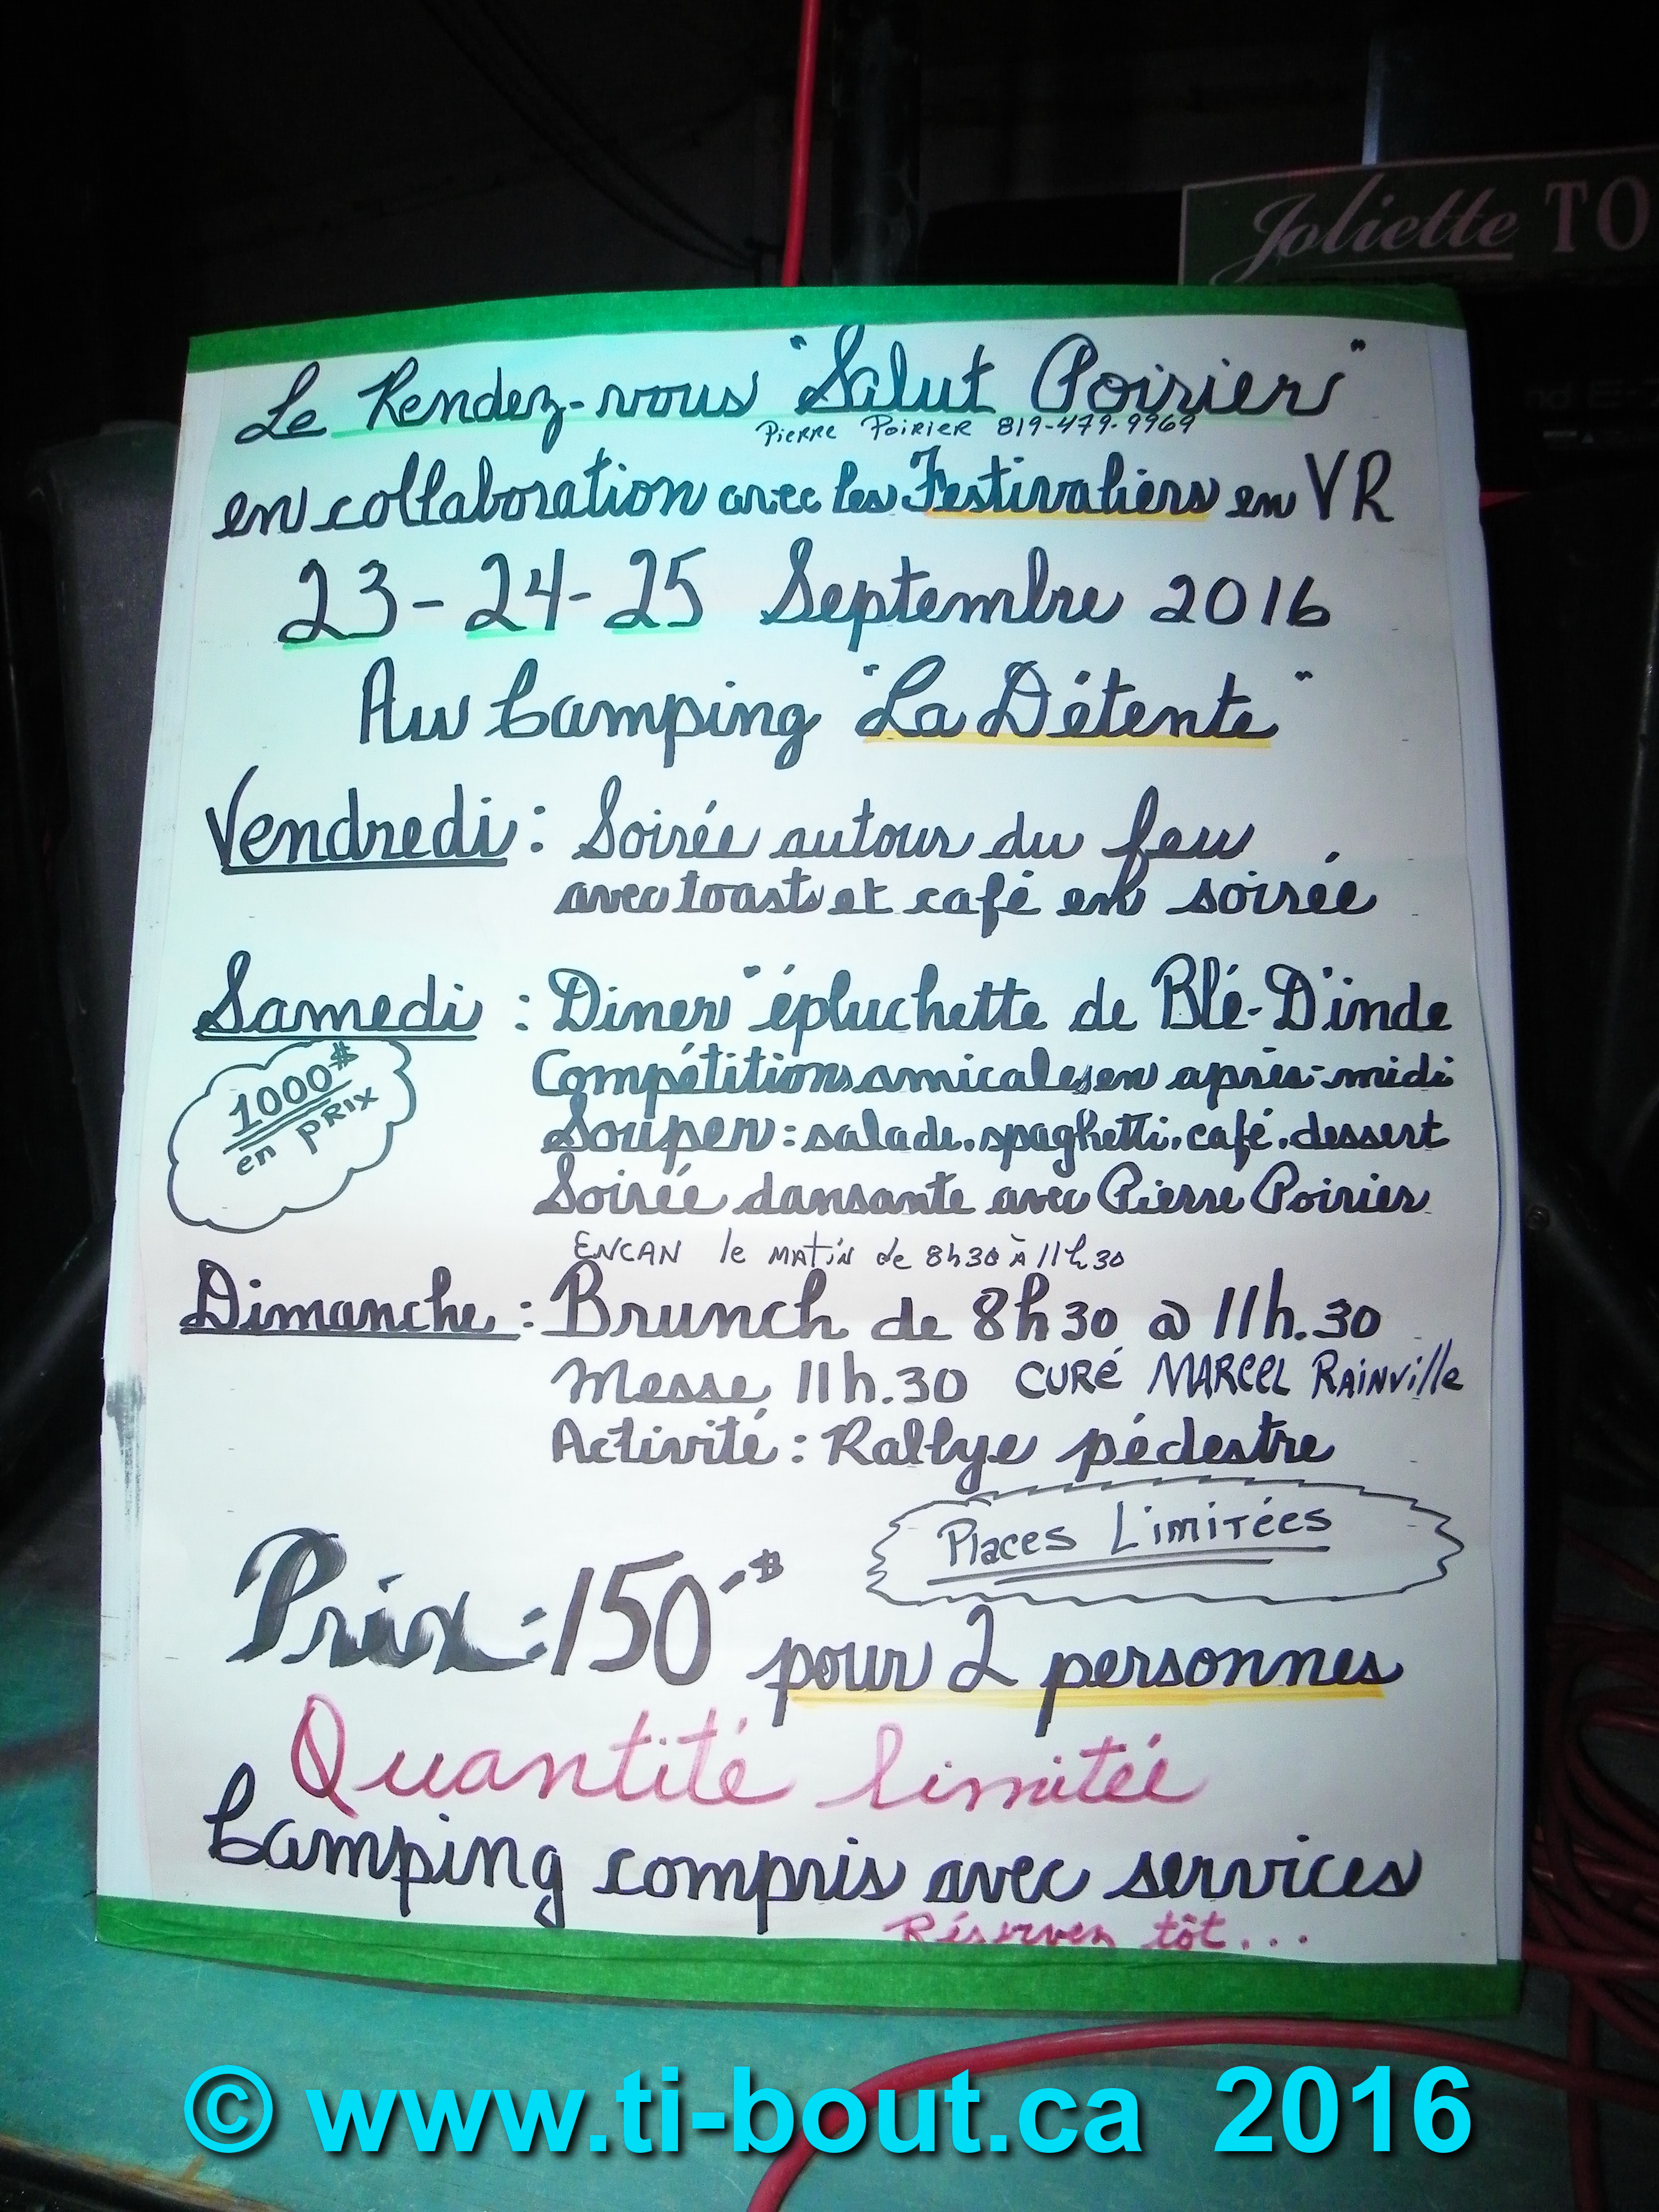 Joliette TO
Le Rendez-vous "Salut Poirier"
Pierre Poirier 819-479-9969
en collaboration avec les Festivaliers en VR
23-24-25 Septembre 2016
Au Camping "La Détente"
Vendredi : Soirée autour du feu
avec toasts et café en soirée
Samedi : Diner "épluchette de Blé-D'inde
1000$
en prix
Compétitions amicales en après-midi
Souper : salade, spaghetti, café, dessert
Soirée dansante avec Pierre Poirier
ENCAN le matin de 8h30 à 11h30
Dimanche : Brunch de 8h30 @ 11h.30
Messe 11h.30 CURÉ MARCEL RAINVille
Activité : Rallye pédestre
Places Limitées
Prix : 150.-$ pour 2 personnes
Quantité limitée
Camping compris avec services
Réserver tôt...
© www.ti-bout.ca 2016